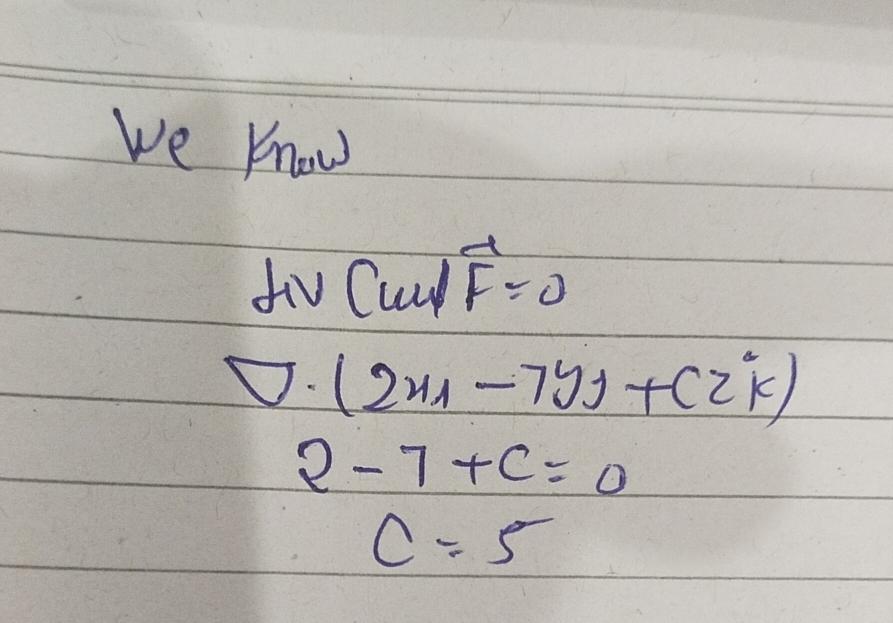 We Know
div Curl F⃗ = 0
∇.(2xi - 7yj + czk)
2 - 7 + C = 0
C = 5